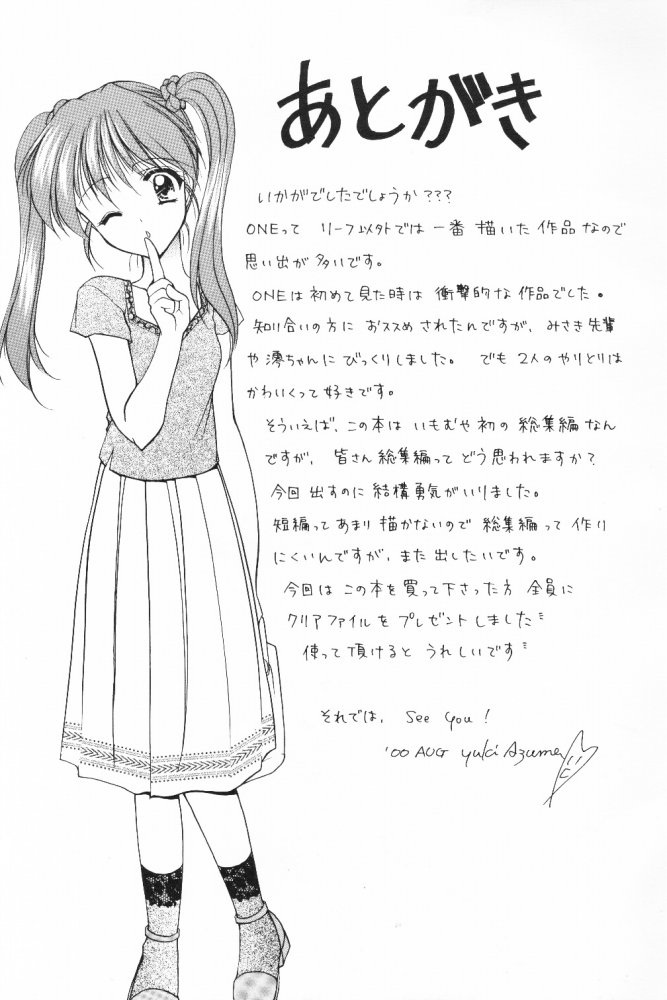 あとがき
いかがでしたでしょうか???
ONEって リーフ以外では 一番 描いた 作品 なので
思い出が 多いです。
ONEは 初めて見た時は 衝撃的な 作品でした。
知り合いの方に おススメ されたんですが、みさき先輩
や 澪ちゃんに びっくりしました。 でも 2人の やりとりは
かわいくって 好きです。
そういえば、この本は いもむや 初の 総集編なん
ですが、皆さん 総集編って どう思われますか?
今回 出すのに 結構勇気がいりました。
短編って あまり 描かないので 総集編って 作り
にくいんですが、また 出したいです。
今回は この本を 買って下さった方 全員に
クリアファイルを プレゼントしました
使って頂けると うれしいです
それでは、 See you!
'00 AUG Yuki Azuma